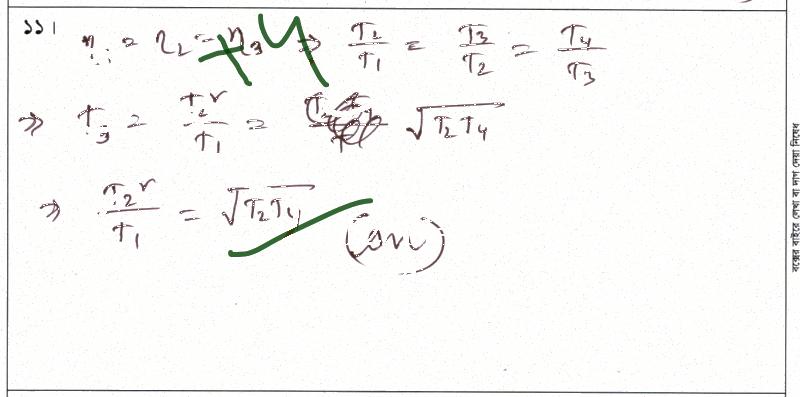 ১১। η₁ = η₂ = η₃ ⇒ T₂/T₁ = T₃/T₂ = T₄/T₃
+4
⇒ T₃ = T₂²/T₁ = √T₂T₄
⇒ T₂²/T₁ = √T₂T₄ (Ans)
বক্সের বাইরে লেখা বা দাগ দেয়া নিষেধ